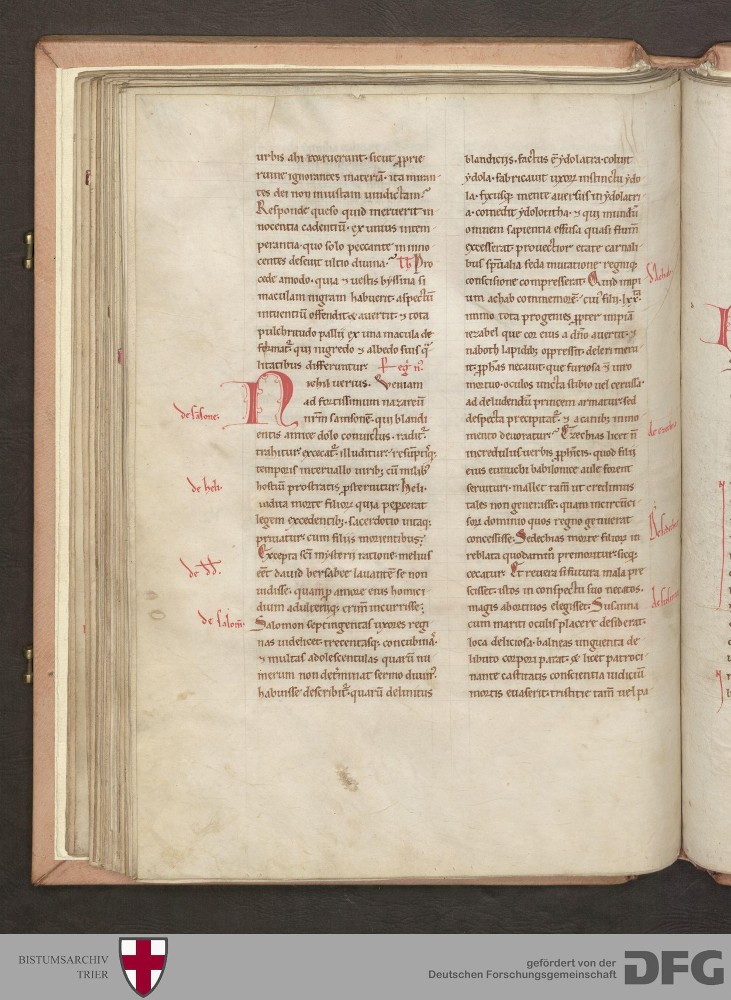 urbis ahi corruerunt. sicut ꝓprie
ruine ignorantes materiā. ita miran
tes dei non iniustam uindictam.
Responde queso quid meruerit in
nocentia cadentiū. ex unius intem
perantia. quo solo peccante in inno
centes deseuit ultio diuina. Pro
cede amodo. quia ⁊ uestis byssina si
maculam nigram habuerit. aspectū
intuentiū offendit & auertit. ⁊ tota
pulchritudo pallii ex una macula de
qui nigredo ⁊ albedo suis q̄
litatibus differuntur.
N
ichil uerius. Veniam
ad fortissimum nazareū
nr̄m samsonē. qui blandi
de sāsone.
entis amice dolo conuictus. radit̄.
trahitur excecat̄. illuditur.
temporis interuallo uirib; cū milib;
de heli.
hostiū prostratis ꝓsternitur. Heli.
uidita morte filiorū quia pepercat
legem excedentib;. sacerdotio uitaq;
priuatur cum filiis morientibus;
Excepta sc̄i mysterii ratione. melius
de dd̄.
eēt dauid bersabee lauantē se non
uidisse. quamꝓ amore eius homici
dium adulteriuq; crim̄ incurrisse;
de salom̄.
Salomon septingentas uxores regi
nas uidelicet. trecentasq; concubinas.
⁊ multas adolescentulas quarū nu
merum non determinat sermo diuin̄.
habuisse describit̄. quarū delinitus
blandiciis. factus ē ydolatra. coluit
ydola. fabricauit uxorū instinctu ydo
la. fixusq; mente auersus in ydolatri
a. comedit ydolotitha. ⁊ qui mundū
omnem sapientia effusa quasi flum̄
excesserat. prouectiori etate carnali
bus sp̄ualia feda mutatione regniq;
consci̅sione compresserat. Quid impi
d̄ Achab.
um achab commemorē. cui; filii. lxx.
immo tota progenies ꝓpter impiā
iezabel que cor eius a dn̄o auertit. ⁊
naboth lapidib; oppressit. deleri meru
it. ꝓphas necauit. que furiosa ⁊ uiro
mortuo. oculos uncta stibio uel cerussa.
ad deludendū princem armatur. sed
despecta precipitat̄. ⁊ a canib; inmo
mento deuoratur. Ezechias licet n̄
de ezechia
incredulus uerbis ꝓphetis. quod filii
eius eunuchi babilonice aule forent
seruituri. mallet tam̄ ut credimus
tales non generasse. quam incircūci
sorū dominio quos regno genuerat
concessisse. Sedechias morte filiorū in
reblata quodammō premoritur. sicq;
cecatur. Et reuera si futura mala pre
scisset. istos in conspectu suo necatos.
magis abortiuos elegisset. Susanna
cum mariti oculis placere desiderat.
loca deliciosa. balneas unguenta de
libuto corpori parat. & licet patroci
nante castitatis conscientia iudiciū
mortis euaserit. tristitie tam̄ uel pa
BISTUMSARCHIV
TRIER
gefördert von der
Deutschen Forschungsgemeinschaft
DFG